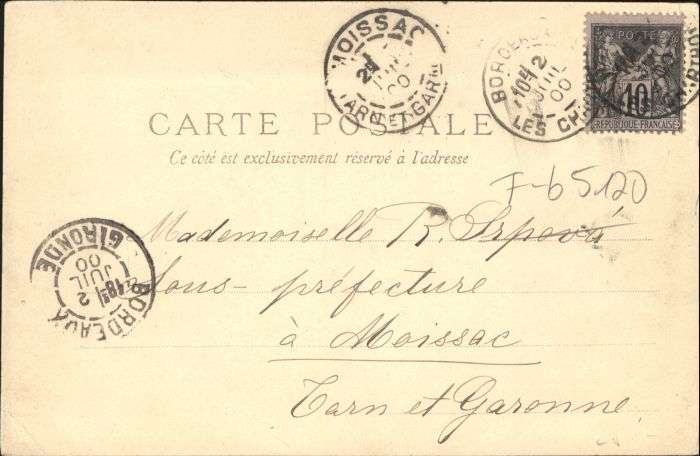 MOISSAC
JUIL
00
TARN-ET-GARNE
BORDEAUX
10H 2
JUIL
00
LES CH
POSTE
10
RÉPUBLIQUE FRANÇAISE
CARTE POSTALE
Ce côté est exclusivement réservé à l'adresse
F-b 5120
Mademoiselle R.
Sous-préfecture
à Moissac
Tarn et Garonne
BORDEAUX
2
JUIL
00
GIRONDE